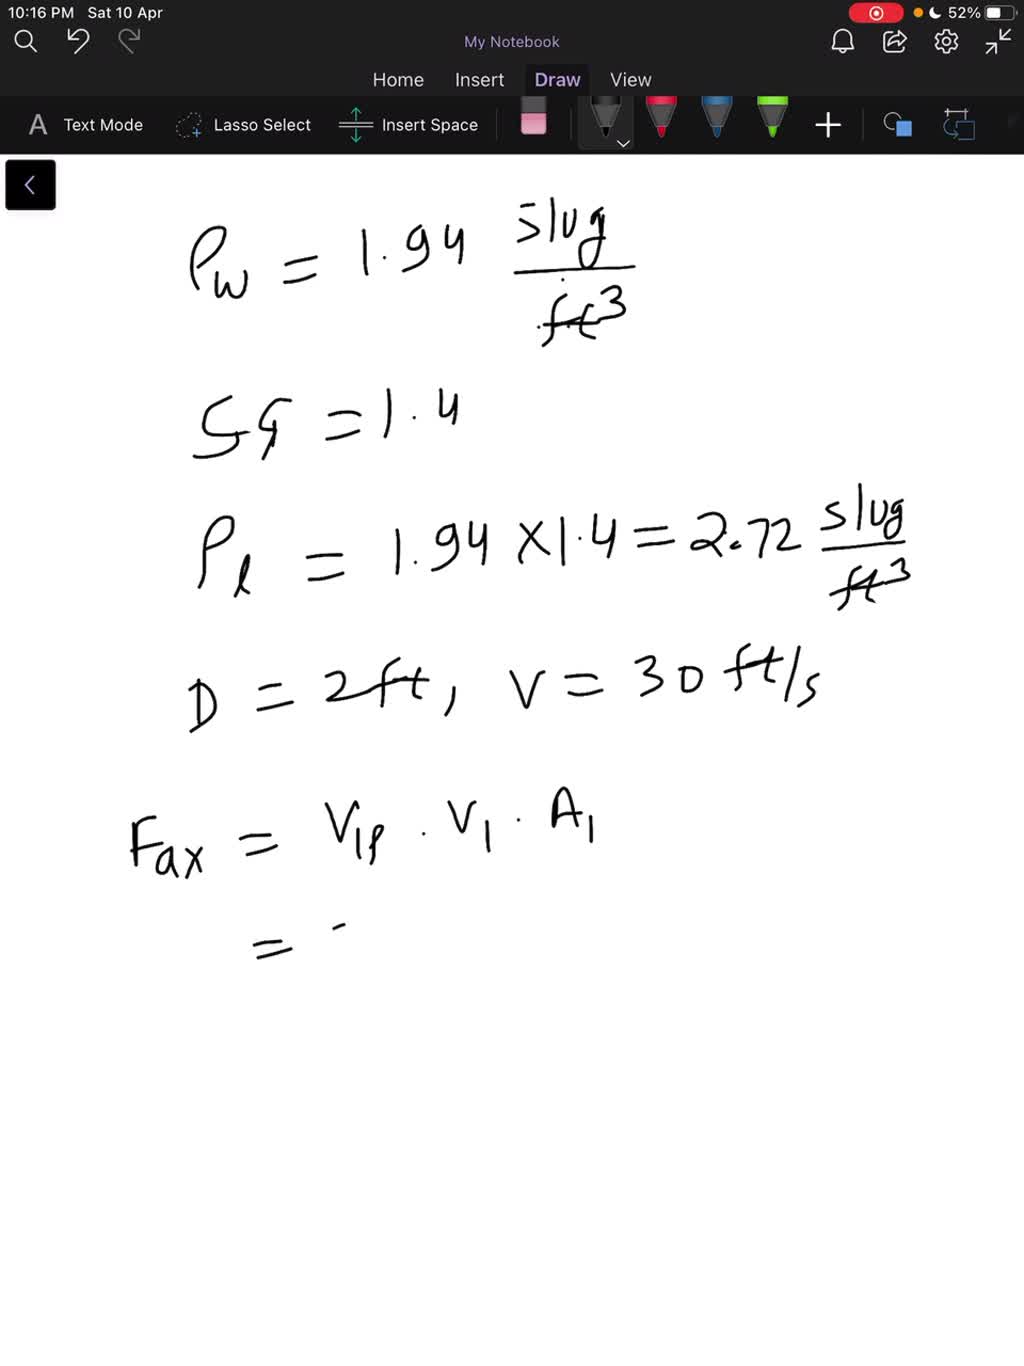 10:16 PM Sat 10 Apr 52%
My Notebook
Home Insert Draw View
A Text Mode Lasso Select Insert Space
ρw = 1.94 slug/ft³
SG = 1.4
ρl = 1.94 × 1.4 = 2.72 slug/ft³
D = 2ft, V = 30 ft/s
Fax = V1ρ . V1 . A1
=